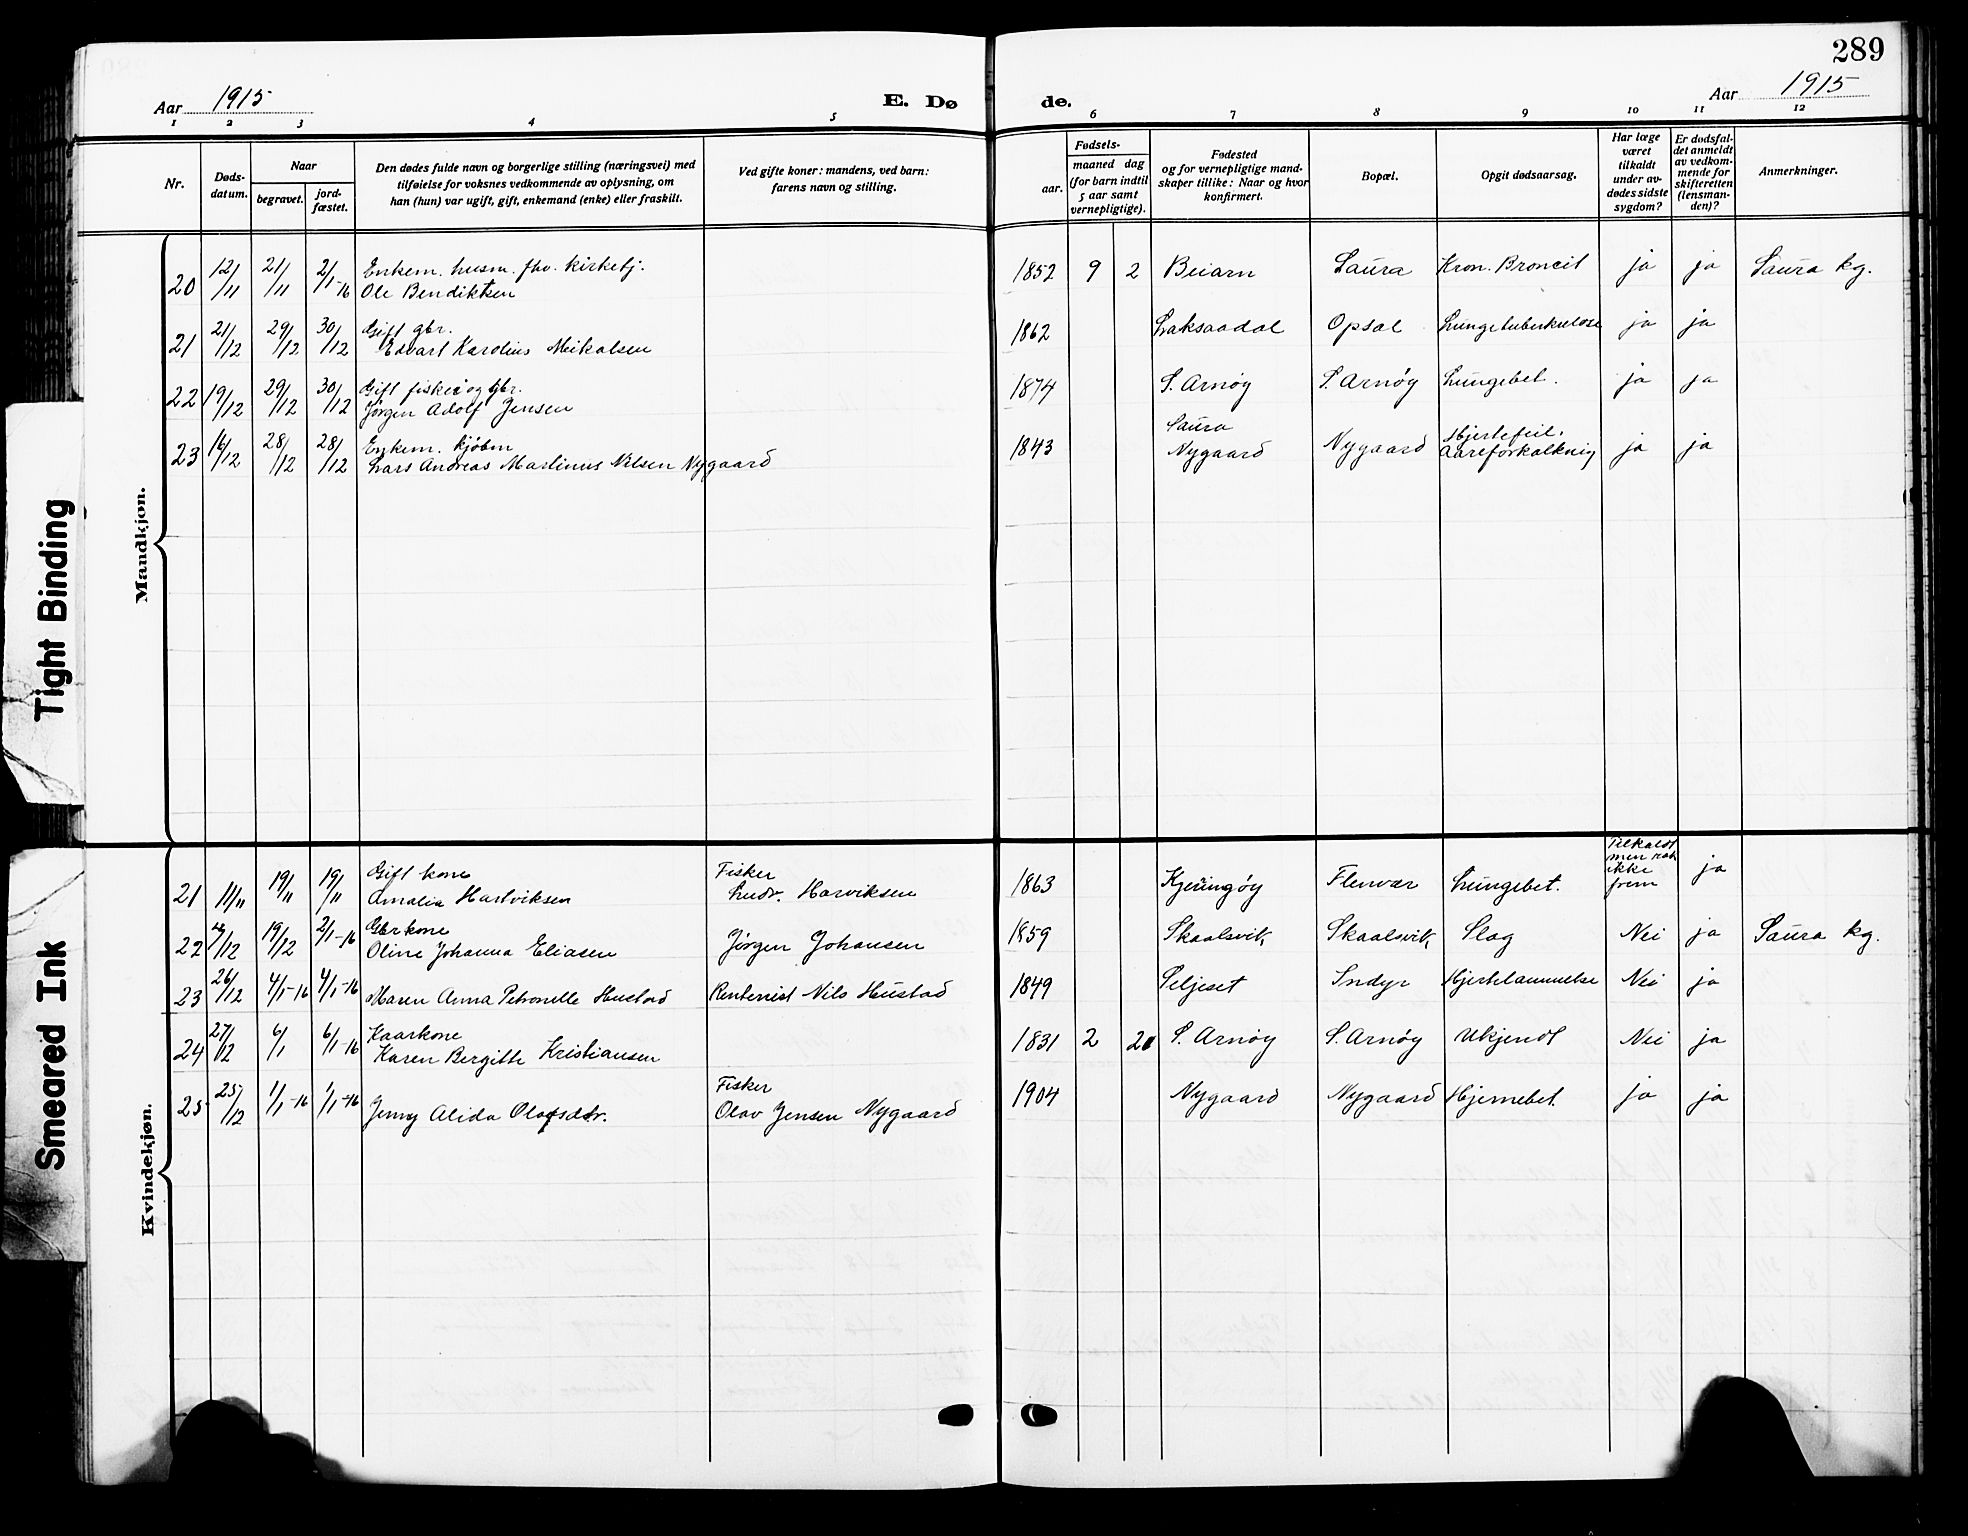 289
Aar 1915
E. Dø de.
Aar 1915
1 2 3 4 5 6 7 8 9 10 11 12
Nr.
Døds-
datum.
Naar
begravet.
jord-
fæstet.
Den dødes fulde navn og borgerlige stilling (næringsvei) med
tilføielse for voksnes vedkommende av oplysning, om
han (hun) var ugift, gift, enkemand (enke) eller fraskilt.
Ved gifte koner: mandens, ved barn:
farens navn og stilling.
Fødsels-
aar.
maaned dag
(for barn indtil
5 aar samt
vernepligtige).
Fødested
og for vernepligtige mand-
skaper tillike: Naar og hvor
konfirmert.
Bopæl.
Opgit dødsaarsag.
Har læge
været
tilkaldt
under av-
dødes sidste
sygdom?
Er dødsfal-
det anmeldt
av vedkom-
mende for
skifteretten
(lensman-
den)?
Anmerkninger.
Mandkjøn.
20 12/11 21/11 2/1-16 Enkem. husm. fhv. kirketj.
Ole Bendiktsen
1852 9 2 Beiarn Saura Kron. Broncit ja ja Saura kg.
21 21/12 29/12 30/12 Gift gbr.
Edvart Karolius Meikalsen
1862 Laksaadal Opsal Lungetuberkulose ja ja
22 19/12 29/12 30/12 Gift fisker og gbr.
Jørgen Adolf Jensen
1874 S. Arnøy S. Arnøy Lungebet. ja ja
23 16/12 28/12 28/12 Enkem. kjøbm
Lars Andreas Martinus Nilsen Nygaard
1843 Saura
Nygaard Nygaard Hjertefeil.
Aareforkalkning ja ja
Kvindekjøn.
21 11/11 19/11 19/11 Gift kone
Amalia Hartviksen
Fisker
Ludv. Harviksen
1863 Kjeringøy Flenvær Lungebet. Tilkaldt
men rak
ikke
frem ja
22 /12 19/12 2/1-16 Gbrkone
Oline Johanna Eliasen
Jørgen Johansen
1859 Skaalsvik Skaalsvik Slag Nei ja Saura kg.
23 26/12 4/1-16 4/1-16 Maren Anna Petronelle Hustad
Rentenist Nils Hustad
1849 Seljeset Indyr Hjertelammelse Nei ja
24 27/12 6/1 6/1-16 Kaarkone
Karen Bergitte Kristiansen
1831 2 21 S. Arnøy S. Arnøy Ukjendt Nei ja
25 25/12 1/1-16 1/1-16 Jenny Alida Olafsdtr.
Fisker
Olav Jensen Nygaard
1904 Nygaard Nygaard Hjernebet. ja ja
Tight Binding
Smeared Ink